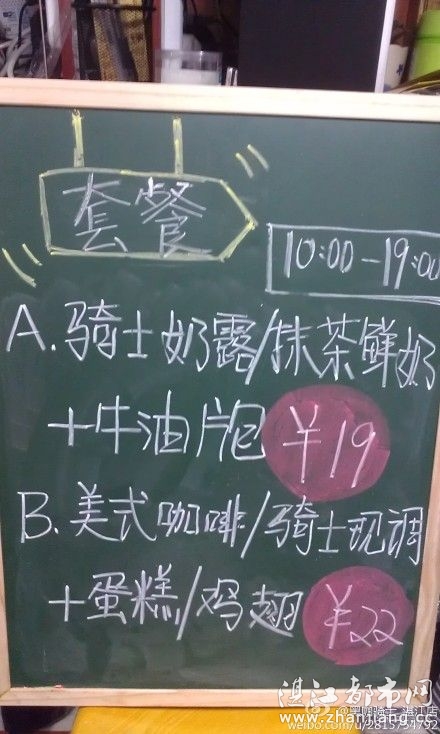 套餐
10:00-19:00
A.骑士奶露/抹茶鲜奶
+牛油片包 ¥19
B.美式咖啡/骑士现调
+蛋糕/鸡翅 ¥22
湛江都市网
weibo.com/u/2813754792
www.zhanjiang.cc